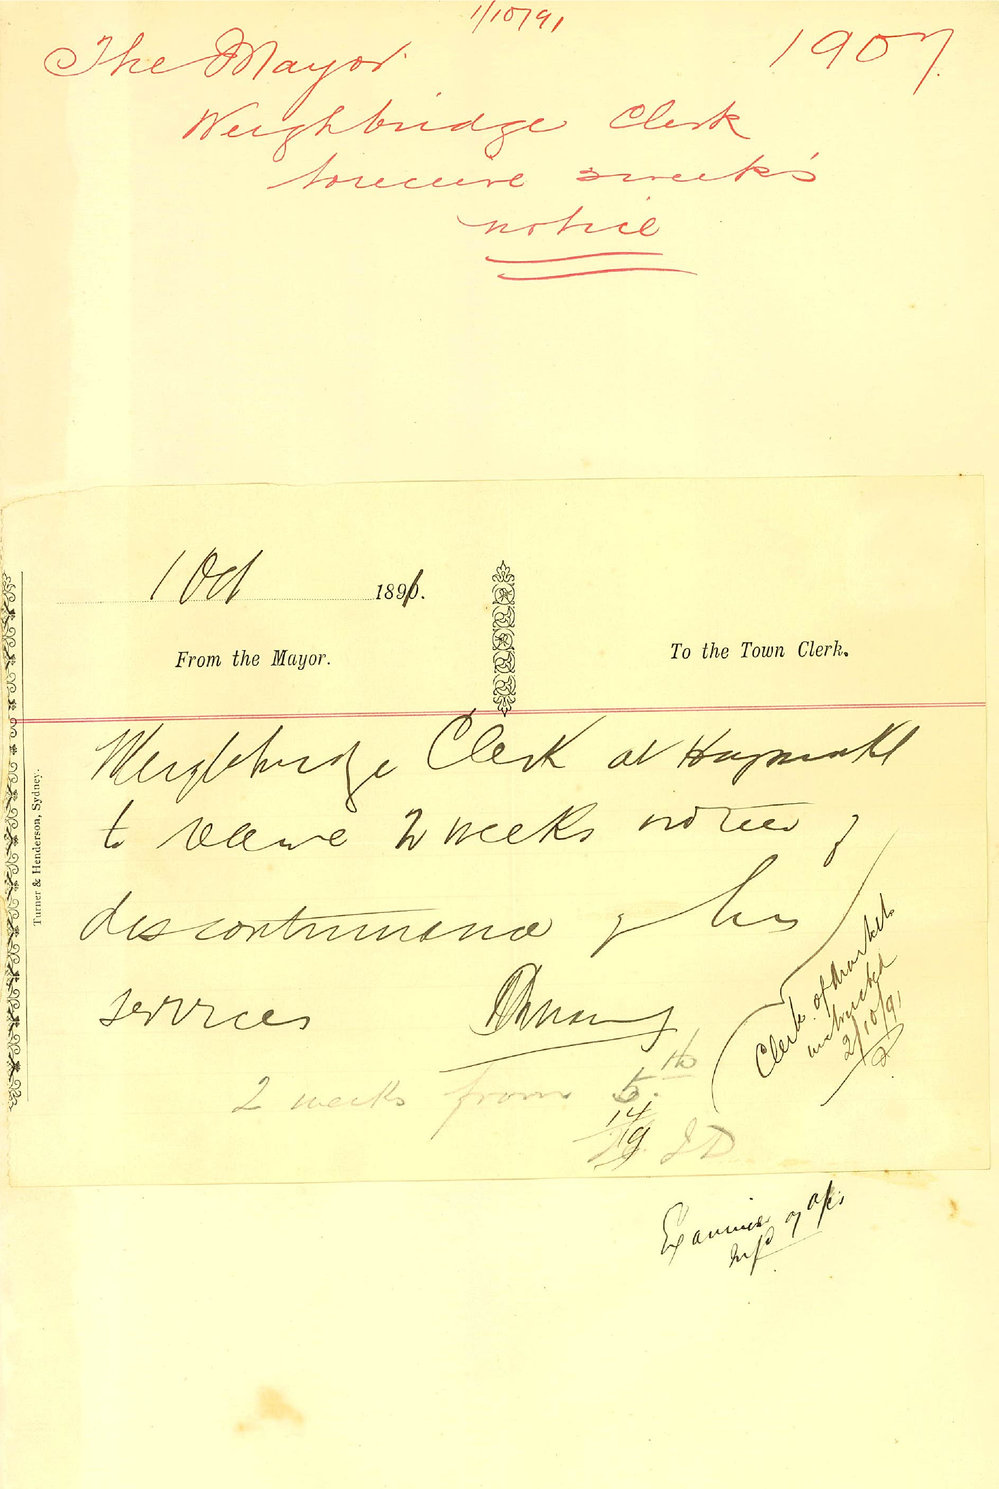 1/10/91
The Mayor
1907.
Weighbridge Clerk
to receive 2 week's
notice
1 Oct 1891.
From the Mayor.
To the Town Clerk.
Weighbridge Clerk at Haymarket
to receive 2 weeks notice of
discontinuance of his
services
2 weeks from 5th
14
19
Clerk of Markets
instructed
2/10/91
Examiner of a/cs
Infd
Turner & Henderson, Sydney.